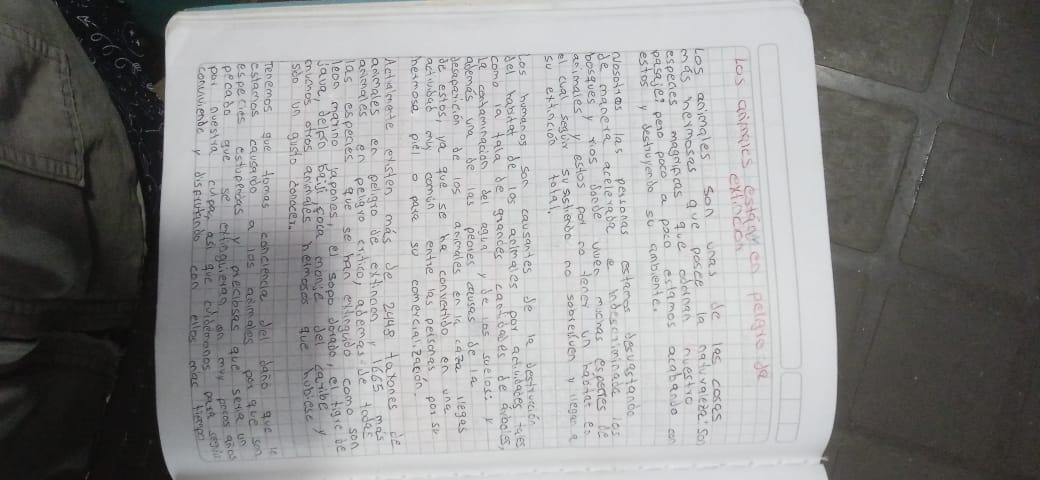 Los animales están en peligro de
extinción
Los animales son unas de las cosas
más hermosas que posee la naturaleza: son
especies magnificas que adornan nuestro
paisaje; pero poco a poco estamos acabando con
estos y destruyendo su ambiente.
Nosotros las personas estamos desvastando
de manera acelerada e indescriminada los
bosques y rios donde viven muchas especies de
animales y estos por no tener un habitat en
el cual seguir subsistiendo no sobreviven y llegan a
su extinción total.
Los humanos son causantes de la destrucción
del habitat de los animales por actividades tales
como la tala de grandes cantidades de arboles,
la contaminación del agua y de los suelos; y
además una de las peores causas de la
desaparición de los animales en la caza ilegas
de estos, ya que se ha convertido en una
actividad muy común entre las personas por su
hermosa piel o para su comercialización.
Actualmente existen más de 2448 taxones de
animales en peligro de extinción y 1665 más
animales en peligro critico, además de todas
las especies que se han extinguido como son
leon marino japones, el sapo dorado, el tigre de
java, delfín baiji, foca monje del caribe y
muchos otros animales hermosos que hubiese
sido un gusto conocer.
Tenemos que tomar conciencia del daño que le
estamos causando a los animales por que son
especies estupendas y preciosas que seria un
pecado que se extinguieran en muy pocos años
por nuestra culpa, asi que cuidemonos para seguir
conviviendo y disfrutando con ellos mas tiempo